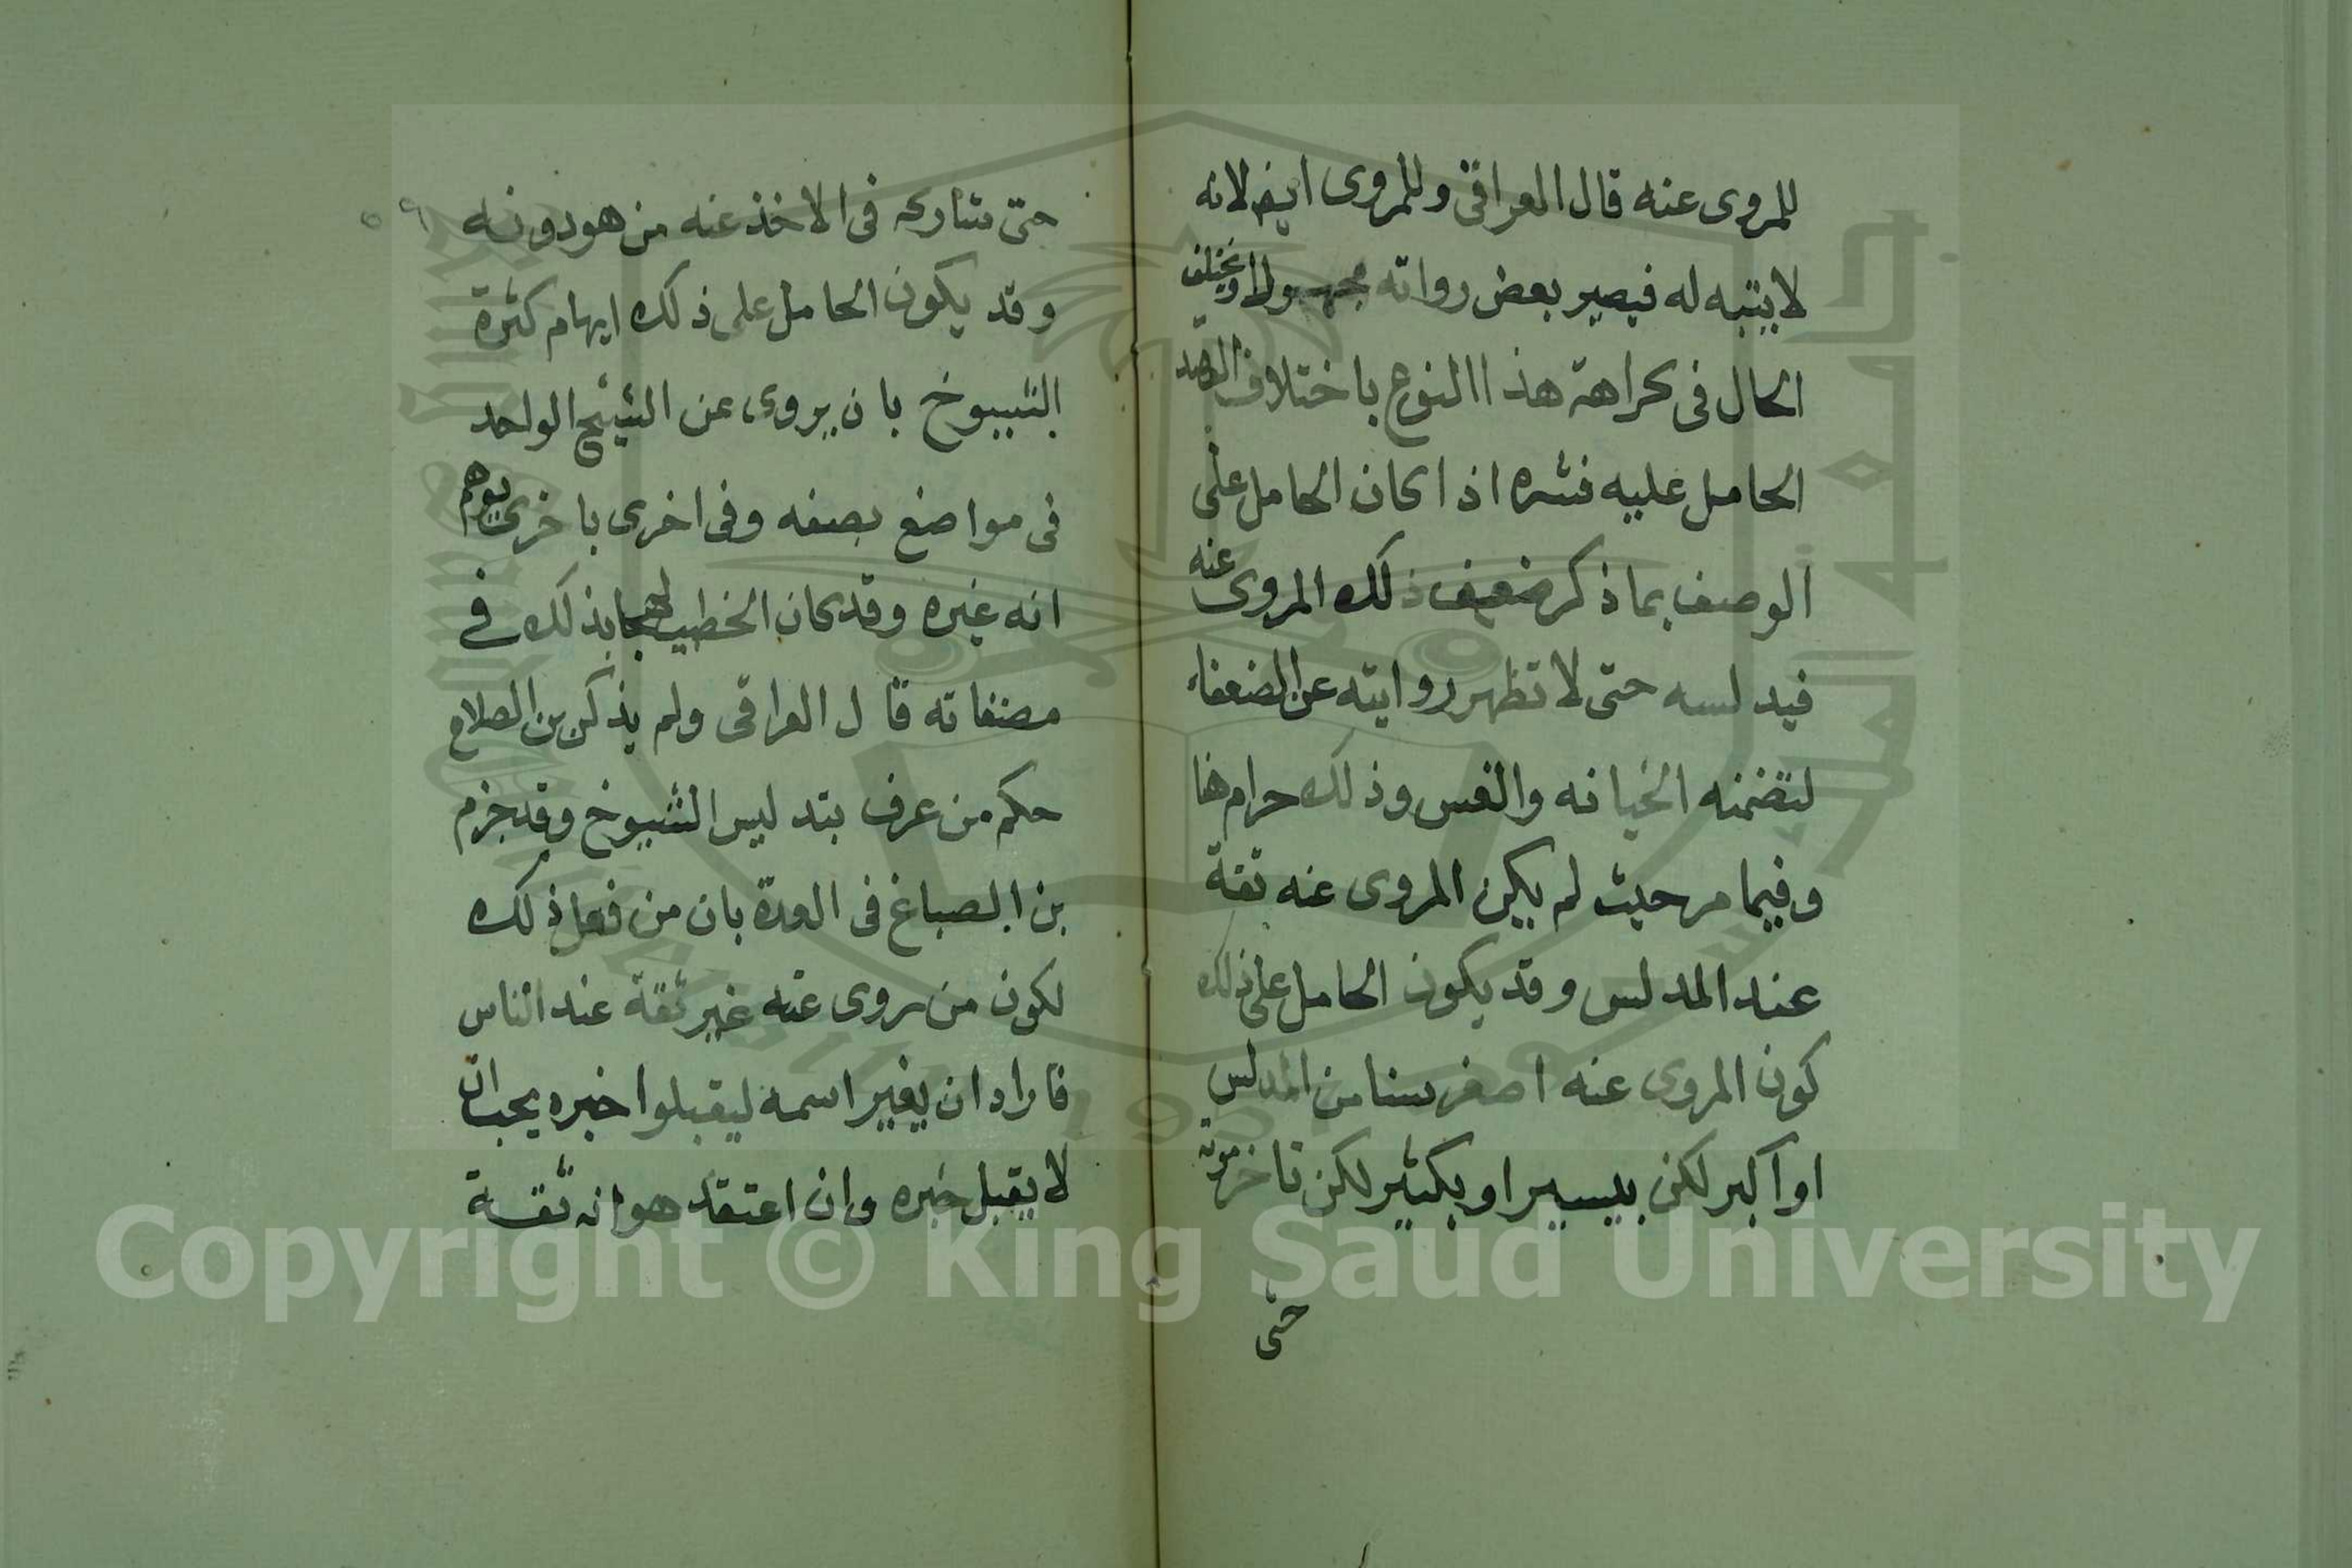 للمروى عنه قال العراقى وللمروى ايضا لانه
لا يتنبه له فيصير بعض رواته مجهولا ويختلف
الحال فى كراهة هذا النوع باختلاف القصد
الحامل عليه فشره اذا كان الحامل على
الوصف بما ذكر ضعيف ذلك المروى عنه
فيدلسه حتى لا تظهر روايته عن الضعفاء
لتضمنه الخيانه والغس وذلك حرام هنا
وفيما مر حيث لم يكن المروى عنه ثقة
عند المدلس وقد يكون الحامل على ذلك
كون المروى عنه اصغر سنا من المدلس
او اكبر لكن بيسير او بكثير لكن تاخر موته
حتى
حتى شاركه فى الاخذ عنه من هو دونه
وقد يكون الحامل على ذلك ايهام كثرة
الشيوخ بان يروى عن الشيخ الواحد
فى مواضع بصفه وفى اخرى باخرى يوهم
انه غيره وقد كان الخطيب لهجا بذلك فى
مصنفاته قال العراقى ولم يذكر بن الصلاح
حكم من عرف بتدليس الشيوخ وقد جزم
بن الصباغ فى العدة بان من فعل ذلك
لكون من روى عنه غير ثقة عند الناس
فاراد ان يغير اسمه ليقبلوا خبره يجب ان
لا يقبل خبره وان اعتقد هو انه ثقة
Copyright © King Saud University